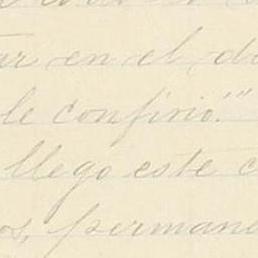 ar en el d
le confirió."
llego este c
os, permane